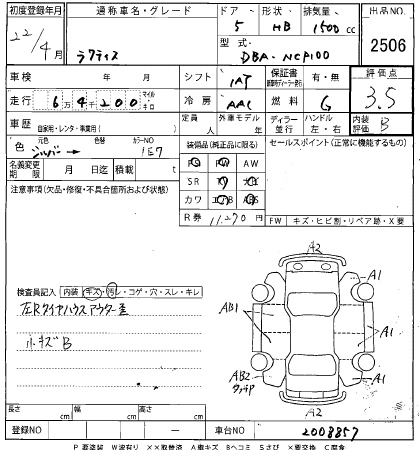 初度登録年月 通称車名・グレード ドア・形状・排気量 出品NO.
22/4月 ラクティス 5 HB 1500cc 2506
型式 DBA-NCP100
車検 年 月 シフト IAT 保証書 有・無 評価点
走行 6万4千200 マイル キロ 冷房 AAC 燃料 G 3.5
車歴 自家用・レンタ・事業用( ) 定員 人 外車モデル 年 ディーラー 並行 ハンドル 左・右 内装評価 B
色 元色 シルバー → 色替 カラーNO 1E7 装備品(純正品に限る) セールスポイント(正常に機能するもの)
名義変更期限 月 日迄 積載 t PS PW AW
注意事項(欠品・修復・不具合箇所および状態) SR
カワ
R券 11.270円
FW キズ・ヒビ割・リペア跡・X要
A2
A1
検査員記入 内装 キズ・汚レ・コゲ・穴・スレ・キレ
左Rタイヤハウスアウター歪
小キズB
AB1
A1
AB2
A1
A2
長さ cm 幅 cm 高さ cm
登録NO ー 車台NO 2008857
P要塗装 W波有り XX取替済 A線キズ Bヘコミ Sさび X要交換 C腐食